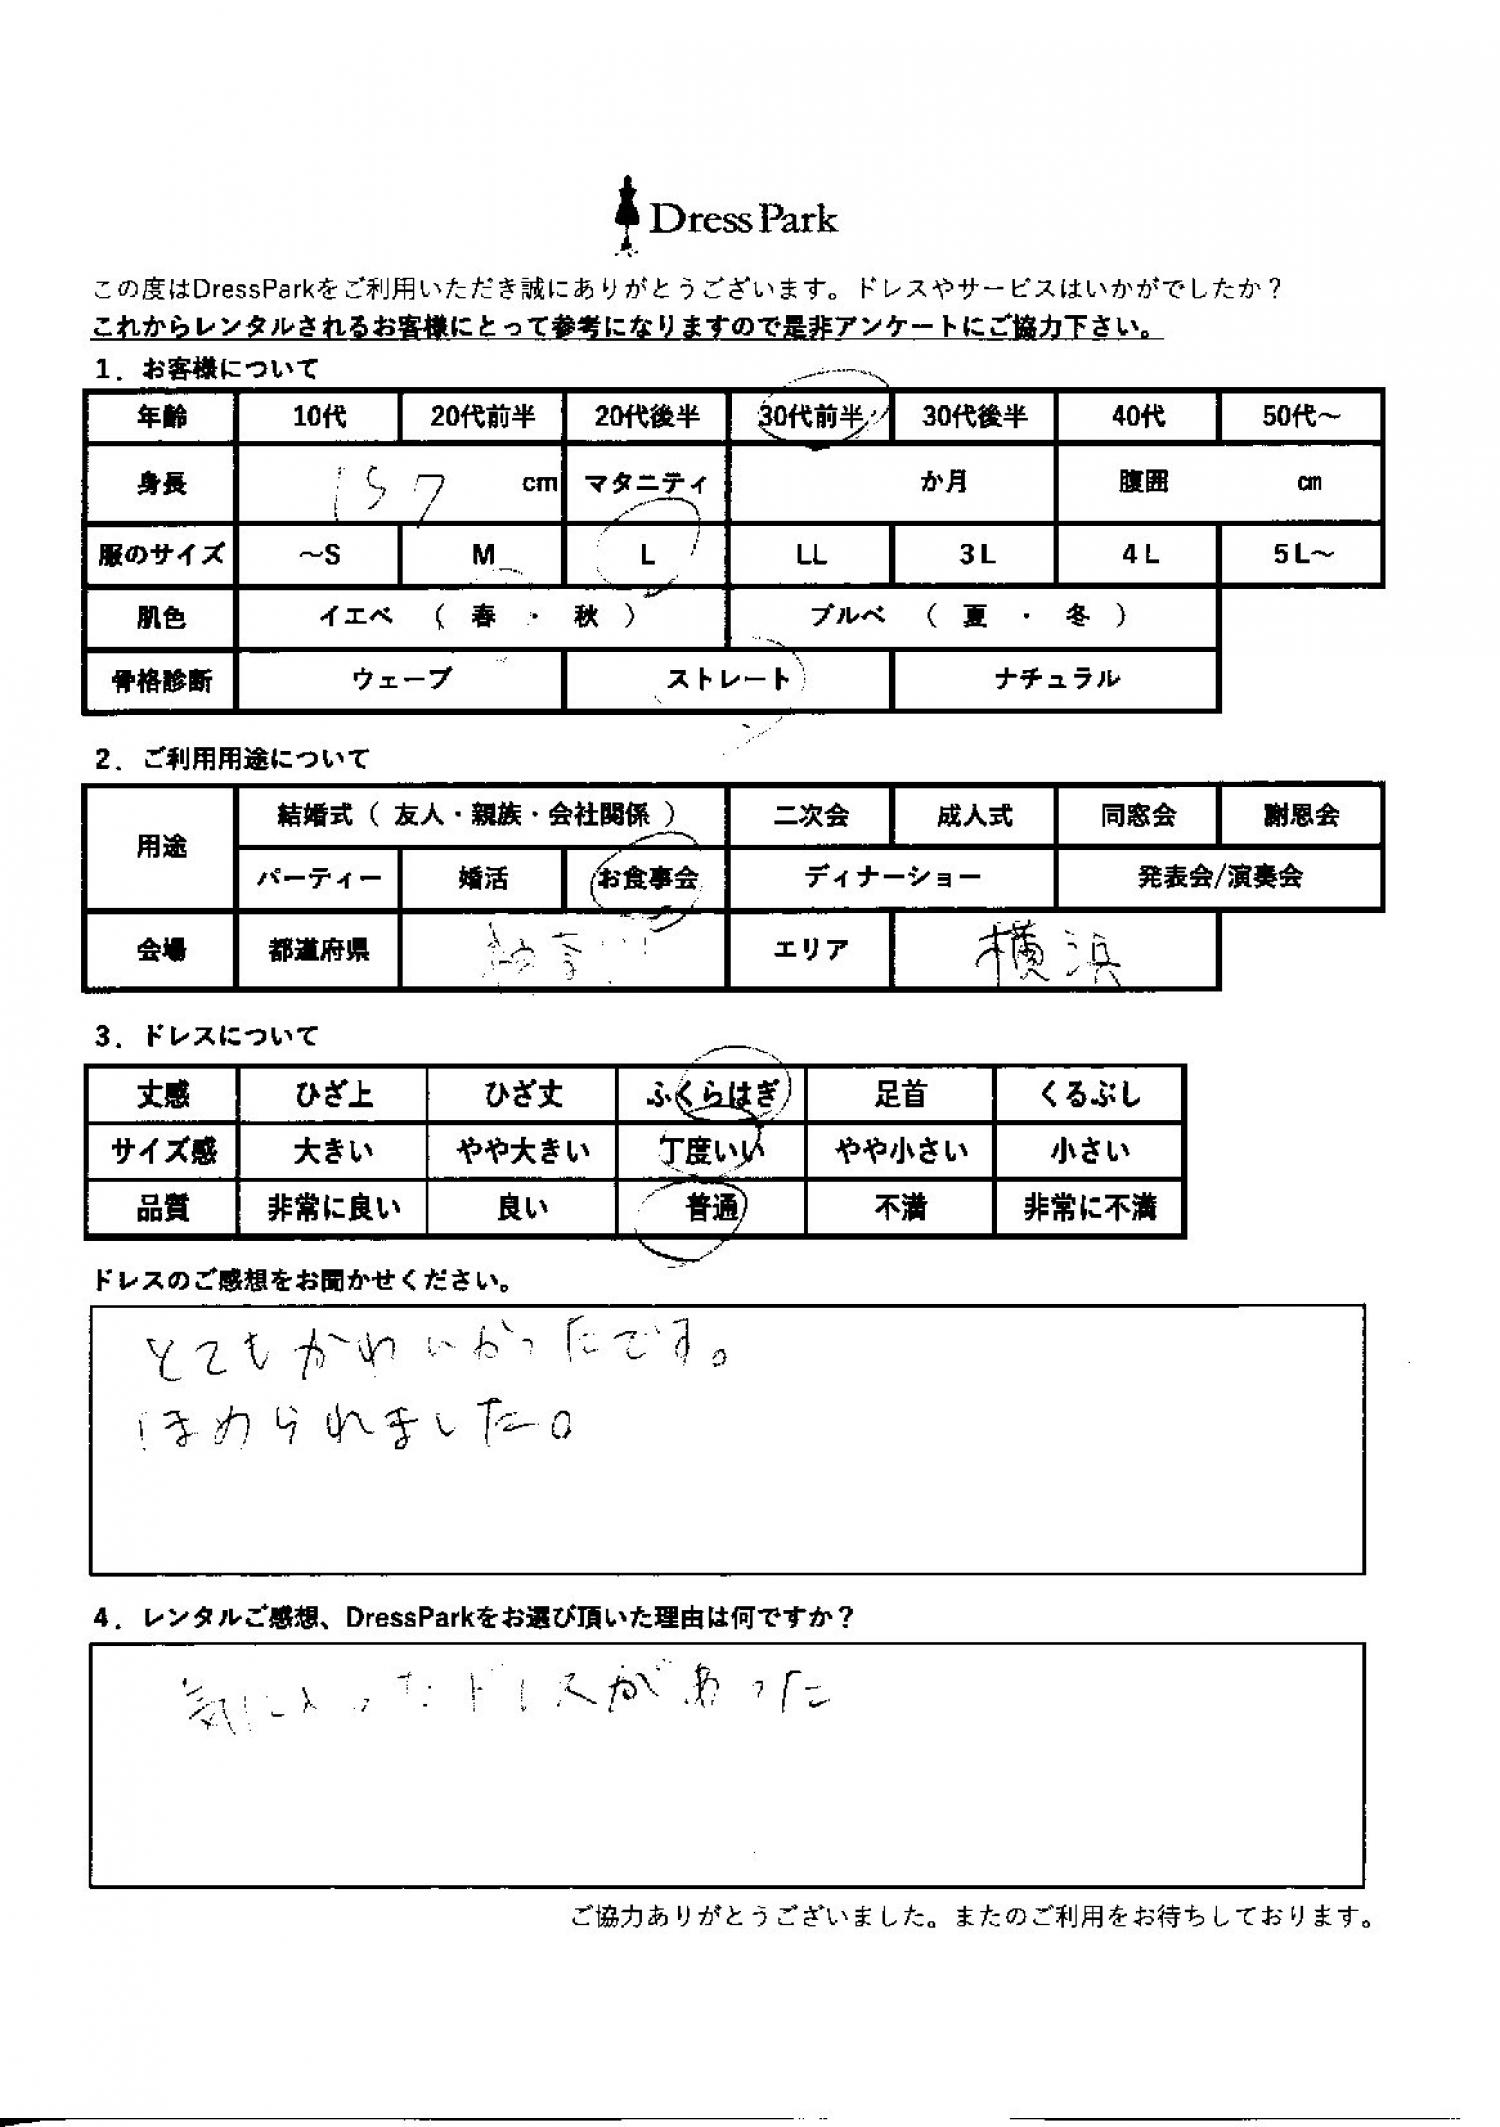 Dress Park
この度はDressParkをご利用いただき誠にありがとうございます。ドレスやサービスはいかがでしたか？
これからレンタルされるお客様にとって参考になりますので是非アンケートにご協力下さい。
1．お客様について
年齢 10代 20代前半 20代後半 30代前半 30代後半 40代 50代～
身長 157 cm マタニティ か月 腹囲 ㎝
服のサイズ ～S M L LL 3L 4L 5L～
肌色 イエベ （ 春 ・ 秋 ） ブルベ （ 夏 ・ 冬 ）
骨格診断 ウェーブ ストレート ナチュラル
2．ご利用用途について
用途 結婚式（ 友人・親族・会社関係 ） 二次会 成人式 同窓会 謝恩会
パーティー 婚活 お食事会 ディナーショー 発表会/演奏会
会場 都道府県 神奈川 エリア 横浜
3．ドレスについて
丈感 ひざ上 ひざ丈 ふくらはぎ 足首 くるぶし
サイズ感 大きい やや大きい 丁度いい やや小さい 小さい
品質 非常に良い 良い 普通 不満 非常に不満
ドレスのご感想をお聞かせください。
とてもかわいかったです。
ほめられました。
4．レンタルご感想、DressParkをお選び頂いた理由は何ですか？
気に入ったドレスがあった
ご協力ありがとうございました。またのご利用をお待ちしております。